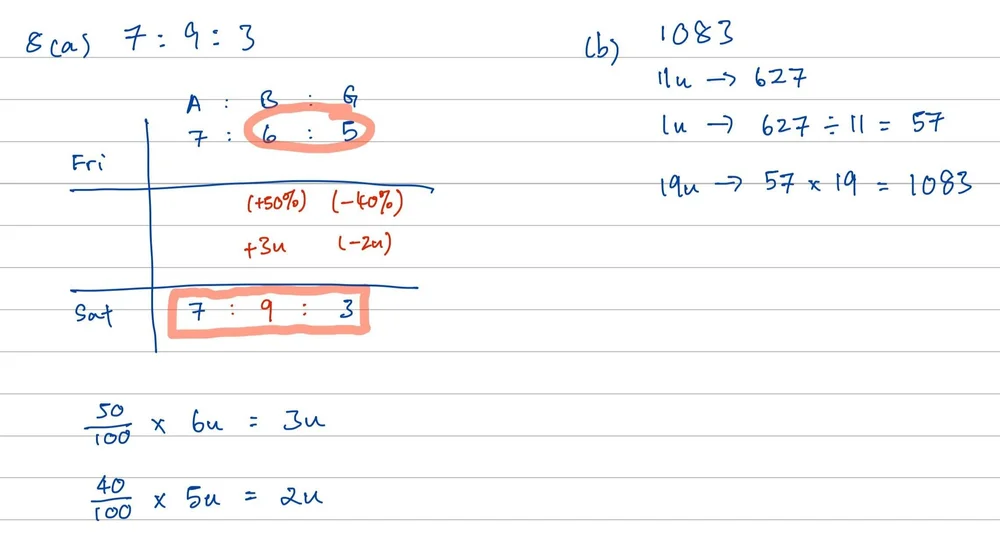 8(a) 7 : 9 : 3
A : B : G
7 : 6 : 5
Fri
(+50%) (-40%)
+3u (-2u)
Sat 7 : 9 : 3
50/100 × 6u = 3u
40/100 × 5u = 2u
(b) 1083
11u → 627
1u → 627 ÷ 11 = 57
19u → 57 × 19 = 1083